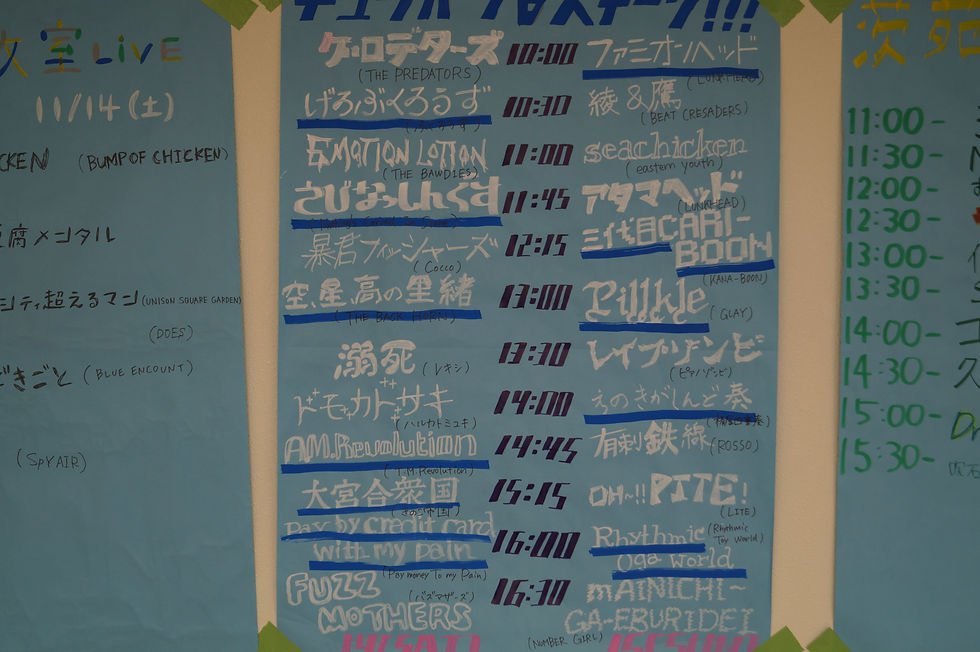 教室 LiVE
11/14(土)
CKEN (BUMP OF CHICKEN)
腐メンタル
シティ超えるマン(UNISON SQUARE GARDEN)
(DOES)
できごと (BLUE ENCOUNT)
(SPYAIR)
ゲ・ロデターズ 10:00 ファミオンヘッド
(THE PREDATORS) (LUNKHEAD)
げろぶくろうず 10:30 綾&鷹
(BEAT CRESADERS)
EMOTION LOTION 11:00 seachicken
(THE BAWDIES) (eastern youth)
さびなっしんぐす 11:45 アタマヘッド
(LUNKHEAD)
暴君フィッシャーズ 12:15 三代目CARI-
(Cocco) BOON
(KANA-BOON)
空、星、高の里緒 13:00 Pillkle
(THE BACK HORN) (GLAY)
溺死 (レキシ) 13:30 レイプゾンビ
(ピアノゾンビ)
ドモッカトサキ 14:00 えのきがしんど奏
(ハルカトミユキ)
A.M.Revolution 14:45 有刺鉄線(ROSSO)
(T.M.Revolution)
大宮合衆国 15:15 OH~!!PITE!
(きのこ帝国) (LITE)
Pay by credit card 16:00 Rhythmic (Rhythmic Toy World)
with my pain Oga World
(Pay money To my Pain)
FUZZ (バズマザーズ) 16:30 mAiNICHI-
MOTHERS GA-EBURIDEI
(NUMBER GIRL)
茨苑
11:00-
11:30-
12:00-
12:30-
13:00-
13:30-
14:00-
14:30-
15:00-
15:30-